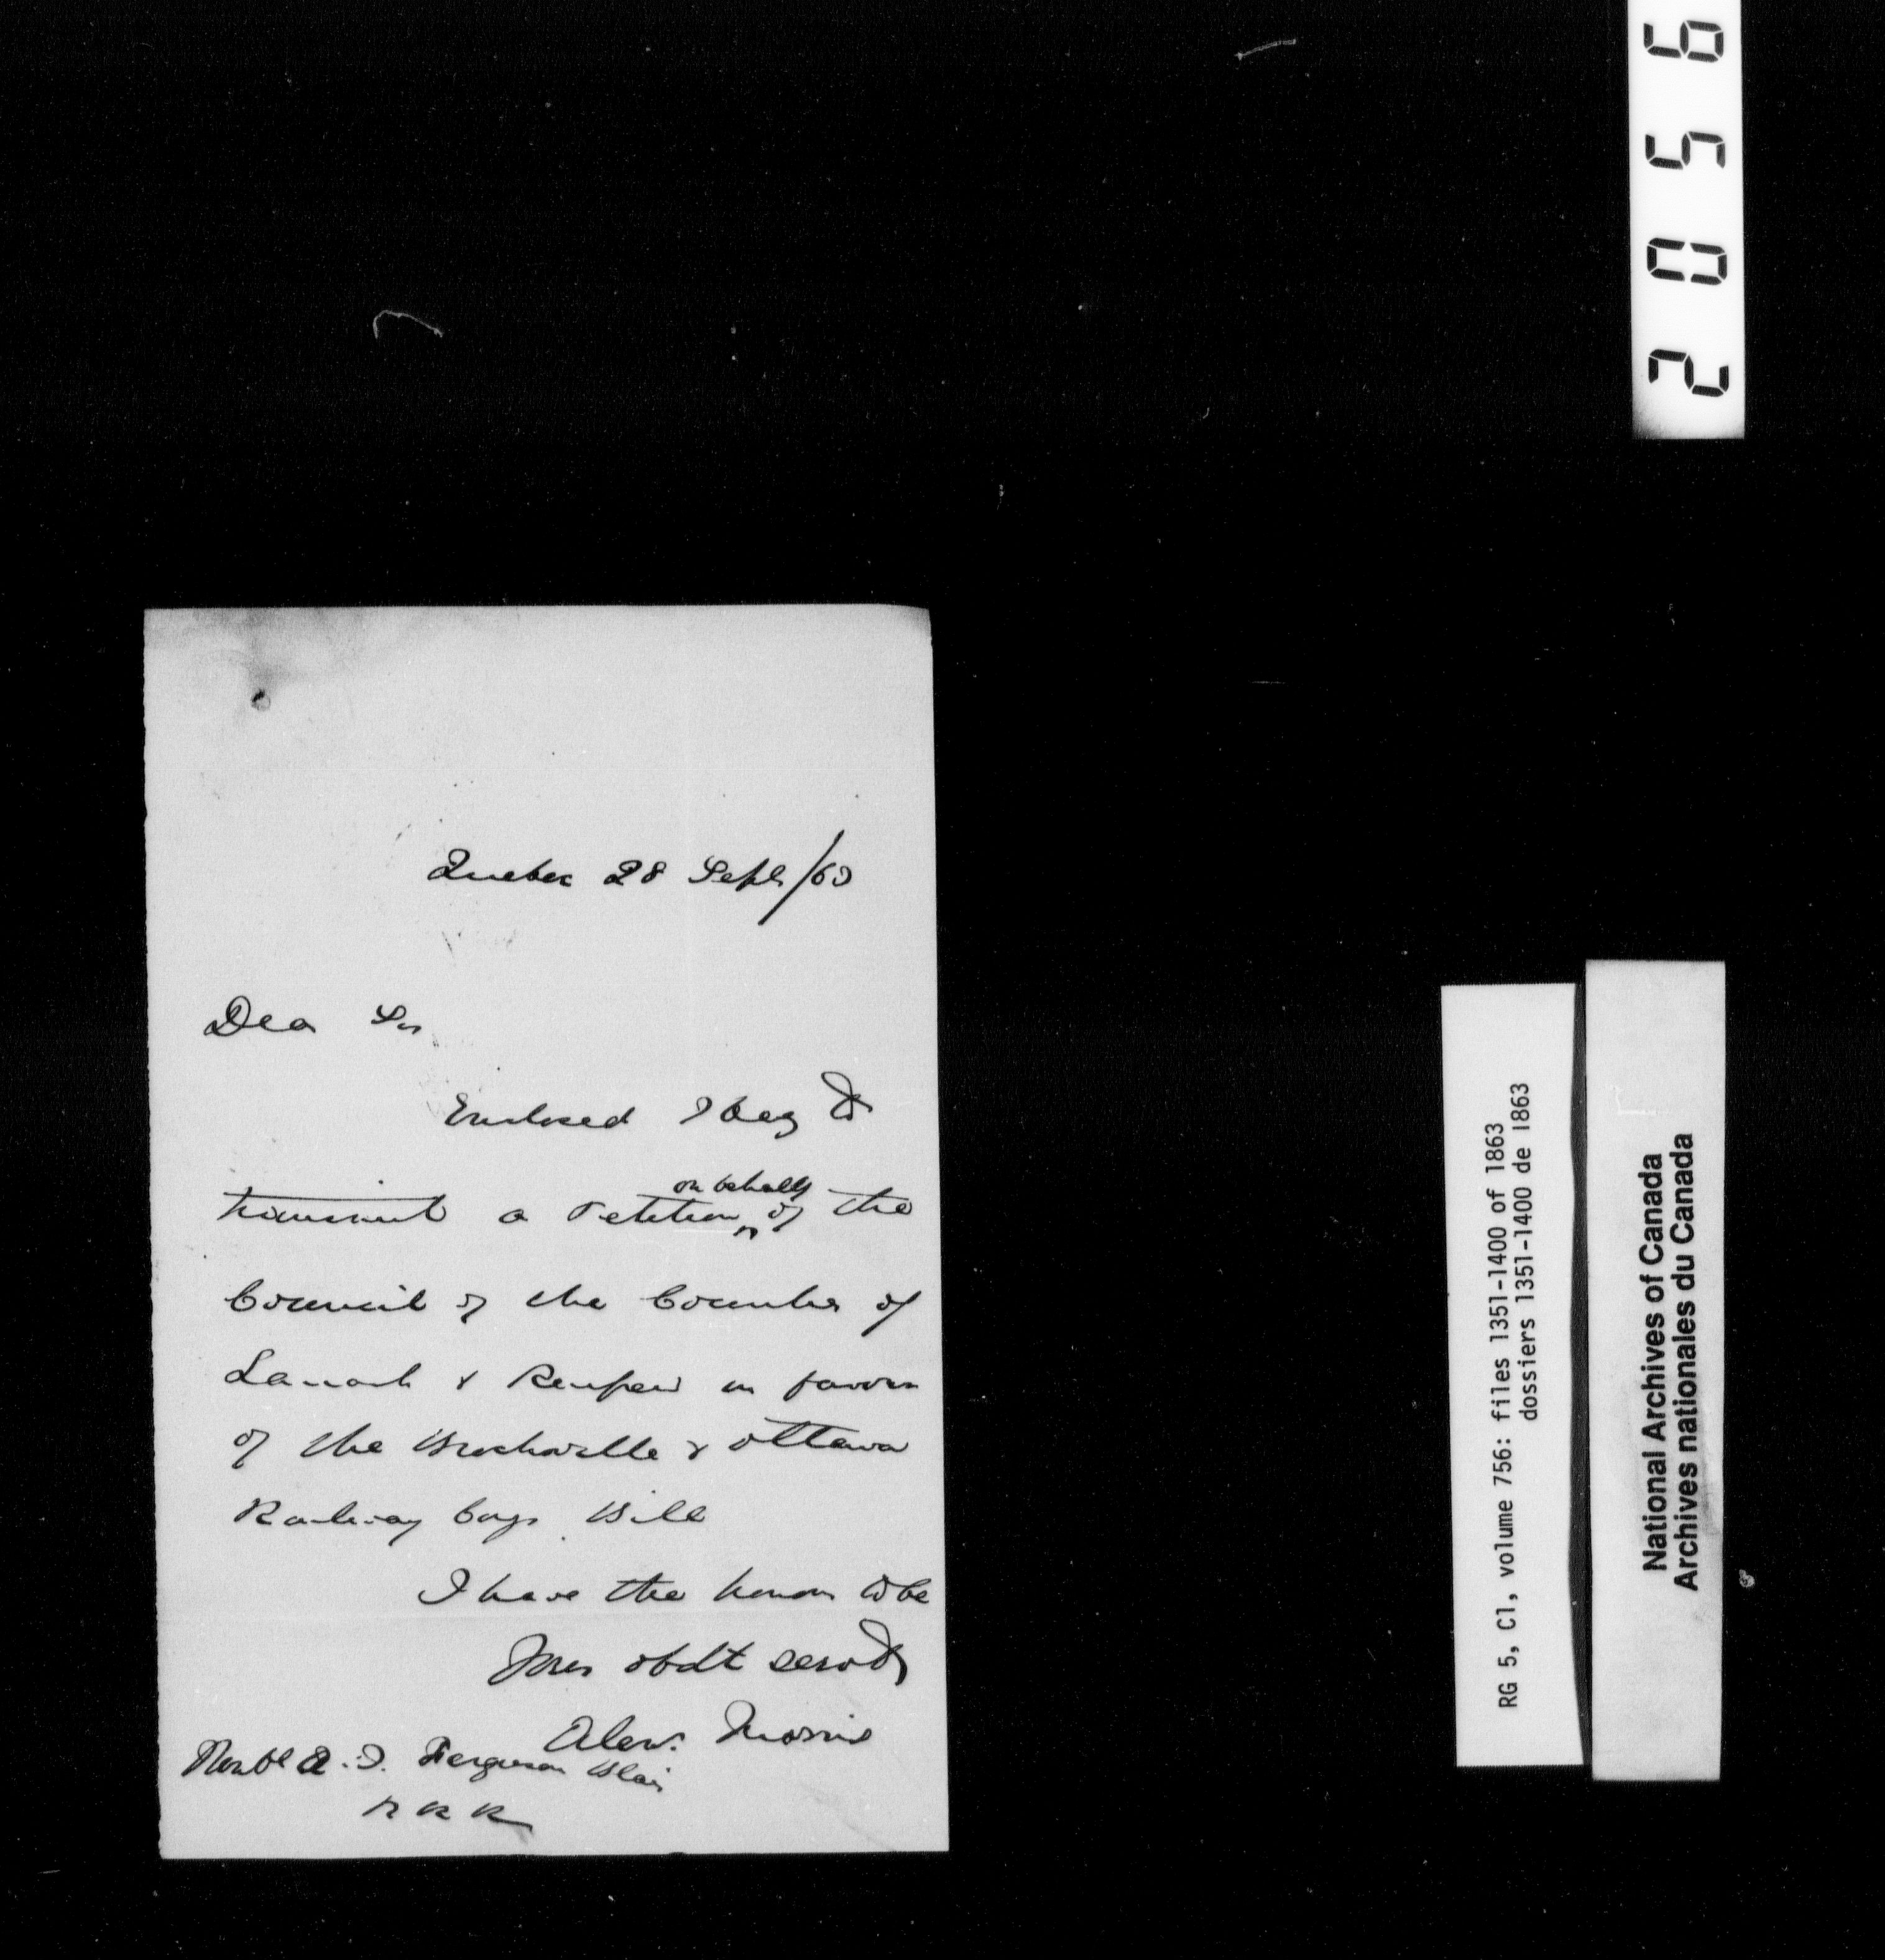 2056
Quebec 28 Sept/63
Dear Sir
Enclosed I beg to
on behalf
transmit a Petition ^ of the
Council of the Counties of
Lanark & Renfrew in favour
of the Brockville & Ottawa
Railway Coys Bill
I have the honor to be
Your obdt servt
Alexr. Morris
Honbl A. J. Ferguson Blair
RG 5, C1, volume 756: files 1351-1400 of 1863
dossiers 1351-1400 de 1863
National Archives of Canada
Archives nationales du Canada